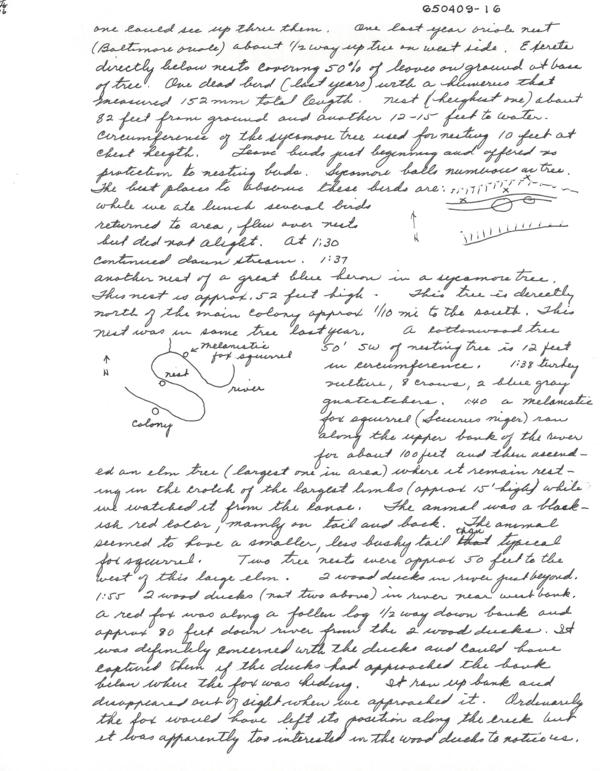 650409-16
one could see up thru them. One last year oriole nest
(Baltimore oriole) about 1/2 way up tree on west side. Excreta
directly below nests covering 50% of leaves on ground at base
of tree. One dead bird (last years) with a humerus that
measured 152 mm total length. nest (heighest one) about
82 feet from ground and another 12-15 feet to water.
Circumference of the sycamore tree used for nesting 10 feet at
chest heigth. Leave buds just beginning and offered no
protection to nesting birds. Sycamore balls numerous on tree.
The best places to observe these birds are:
while we ate lunch several birds
returned to area, flew over nests
but did not alight. At 1:30
N
continued down stream. 1:37
another nest of a great blue heron in a sycamore tree.
This nest is approx. 52 feet high. This tree is directly
north of the main colony approx 1/10 mi to the south. This
nest was in same tree last year. A cottonwood tree
melanistic
fox squirrel
N
nest
river
colony
50' SW of nesting tree is 12 feet
in circumference. 1:38 turkey
vulture, 8 crows, 2 blue gray
gnatcatchers. 1:40 a melanistic
fox squirrel (Sciurus niger) ran
along the upper bank of the river
for about 100 feet and then ascend-
ed an elm tree (largest one in area) where it remain rest-
ing in the crotch of the largest limbs (approx 15' high) while
we watched it from the canoe. The anmal was a black-
ish red color, mainly on tail and back. The animal
seemed to have a smaller, less bushy tail than typical
fox squirrel. Two tree nests were approx 50 feet to the
west of this large elm. 2 wood ducks in river just beyond.
1:55 2 wood ducks (not two above) in river near west bank.
A red fox was along a fallen log 1/2 way down bank and
approx 80 feet down river from the 2 wood ducks. It
was definitely concerned with the ducks and could have
captured them if the ducks had approached the bank
below where the fox was hiding. It ran up bank and
disappeared out of sight when we approached it. Ordinarily
the fox would have left its position along the creek but
it was apparently too interested in the wood ducks to notice us.